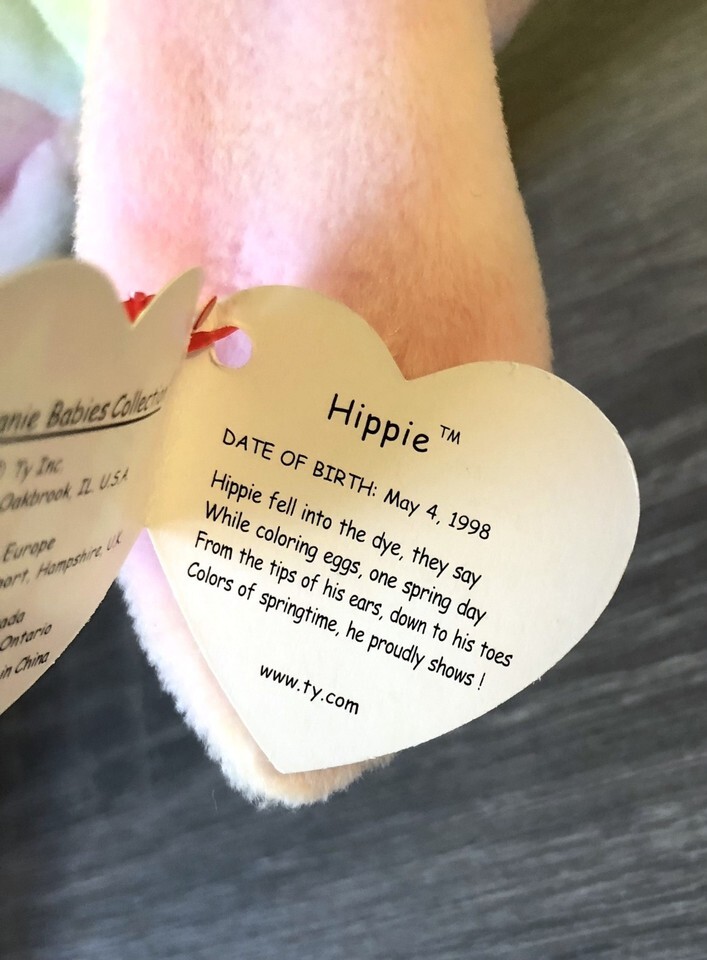 Babies Collection
Ty Inc.
Oakbrook, IL. U.S.A.
Europe
Hampshire, U.K.
Ontario
in China
Hippie™
DATE OF BIRTH: May 4, 1998
Hippie fell into the dye, they say
While coloring eggs, one spring day
From the tips of his ears, down to his toes
Colors of springtime, he proudly shows !
www.ty.com